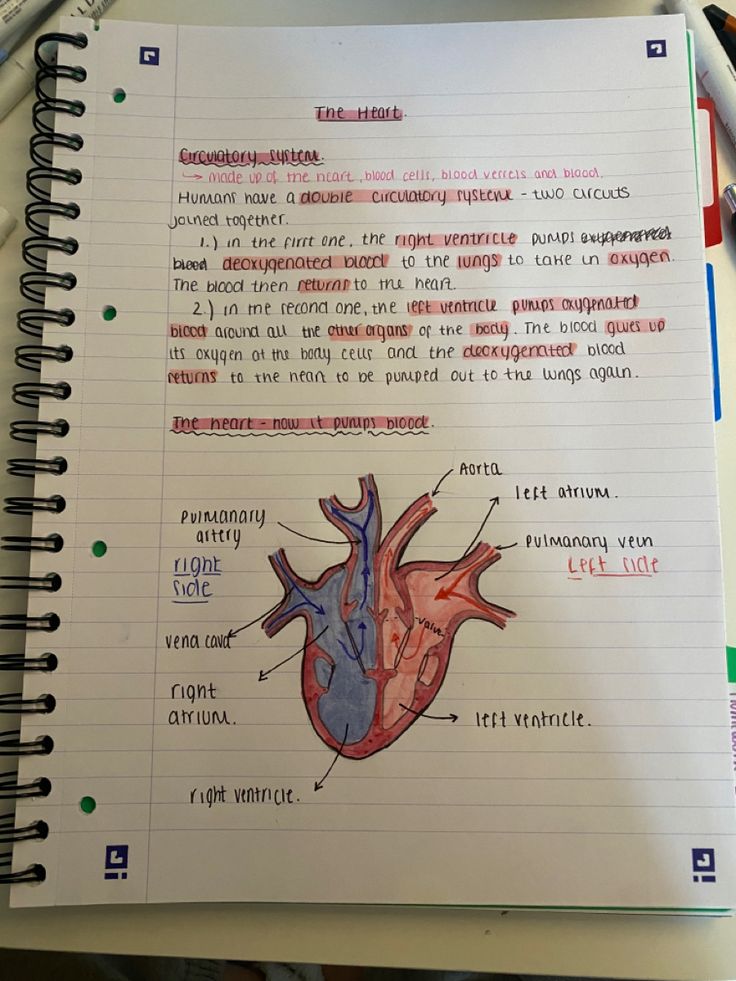 The Heart.
Circulatory system.
↳ made up of the heart, blood cells, blood vessels and blood.
Humans have a double circulatory system - two circuits
joined together.
1.) in the first one, the right ventricle pumps oxygenated
blood deoxygenated blood to the lungs to take in oxygen.
The blood then returns to the heart.
2.) in the second one, the left ventricle pumps oxygenated
blood around all the other organs of the body. The blood gives up
its oxygen at the body cells and the deoxygenated blood
returns to the heart to be pumped out to the lungs again.
The heart - how it pumps blood.
Aorta
left atrium.
pulmanary
artery
pulmanary vein
left side
right
side
valve
vena cava
right
atrium.
left ventricle.
right ventricle.